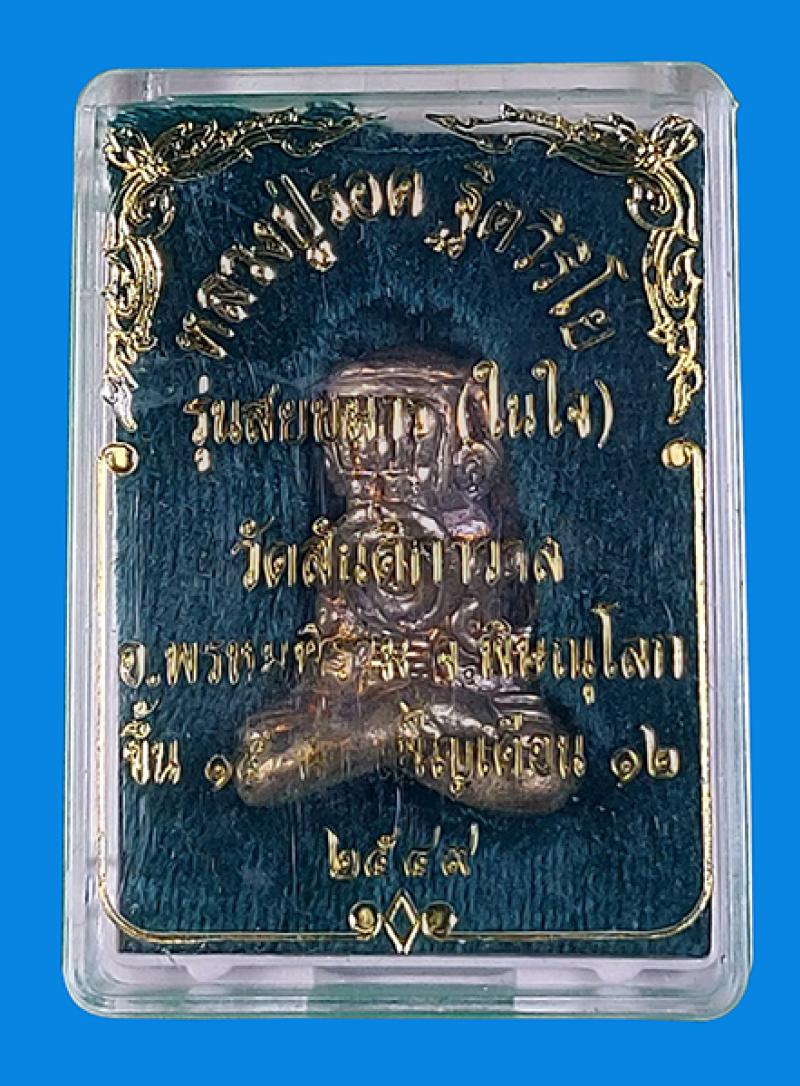 หลวงปู่รอด ฐิตวิริโย
รุ่นสยบมาร (ในใจ)
วัดสันติกาวาส
อ.พรหมพิราม จ.พิษณุโลก
ขึ้น ๑๕ ค่ำ เพ็ญเดือน ๑๒
๒๕๔๙